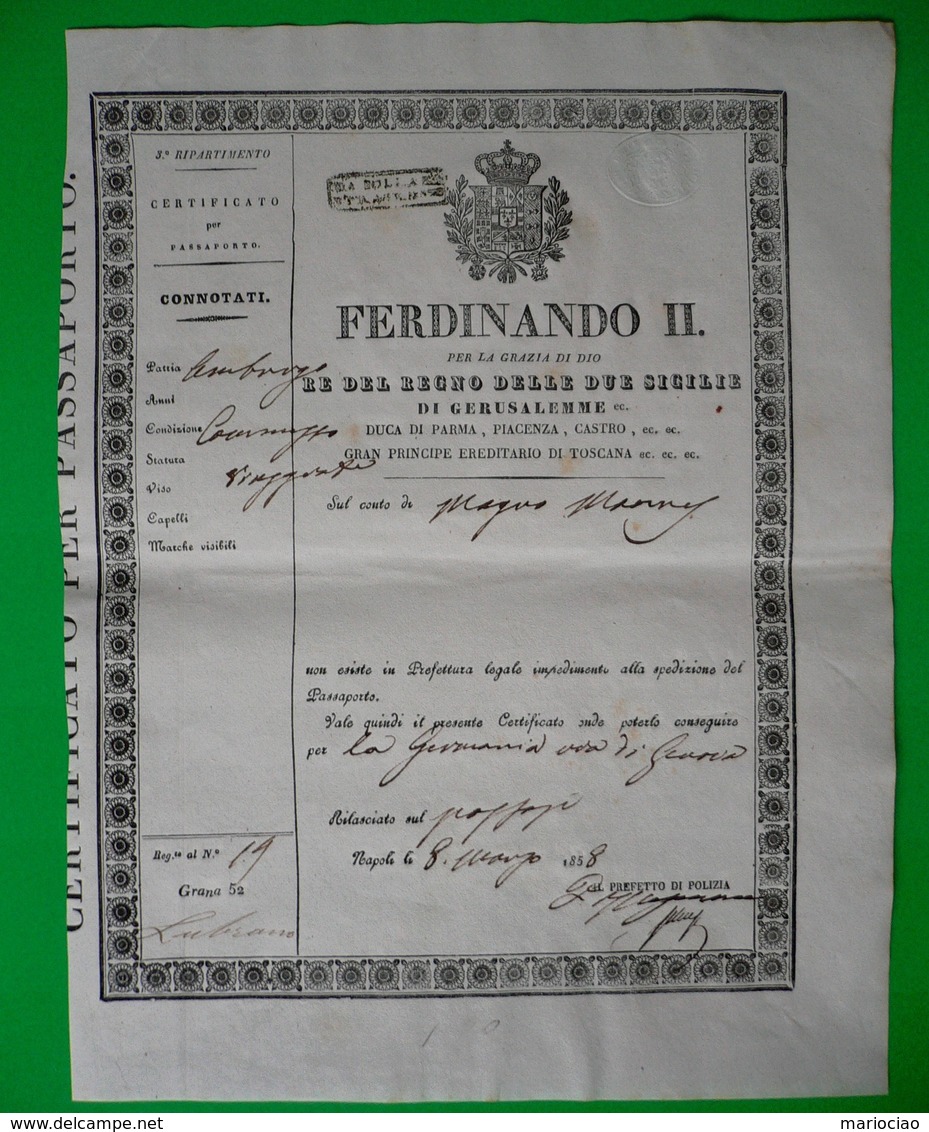 CERTIFICATO PER PASSAPORTO.
3.º RIPARTIMENTO
CERTIFICATO
per
PASSAPORTO.
CONNOTATI.
Patria Amburgo
Anni
Condizione
Statura
Viso
Capelli
Marche visibili
Reg.to al N.º 19
Grana 52
Lubrano
FERDINANDO II.
PER LA GRAZIA DI DIO
RE DEL REGNO DELLE DUE SICILIE
DI GERUSALEMME ec.
DUCA DI PARMA, PIACENZA, CASTRO, ec. ec.
GRAN PRINCIPE EREDITARIO DI TOSCANA ec. ec. ec.
Sul conto di Magno
non esiste in Prefettura legale impedimento alla spedizione del
Passaporto.
Vale quindi il presente Certificato onde poterlo conseguire
per la Germania via di Genova
Rilasciato sul
Napoli li 8. Marzo 1858
IL PREFETTO DI POLIZIA
mariociao